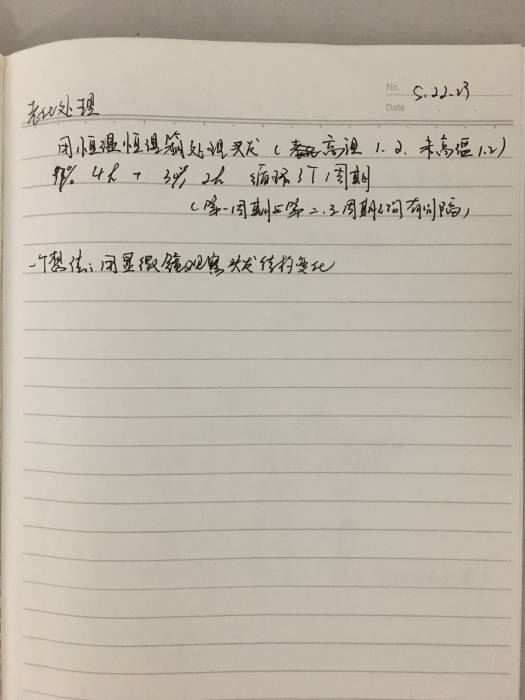 No. 5.22-23
Date
老化处理
用恒温恒湿箱处理头发（高温1.2. 未高温1.2）
98% 4h + 30% 2h 循环3个周期
（第一周期与第二、三周期之间有间隔）
一个想法：用显微镜观察头发结构变化